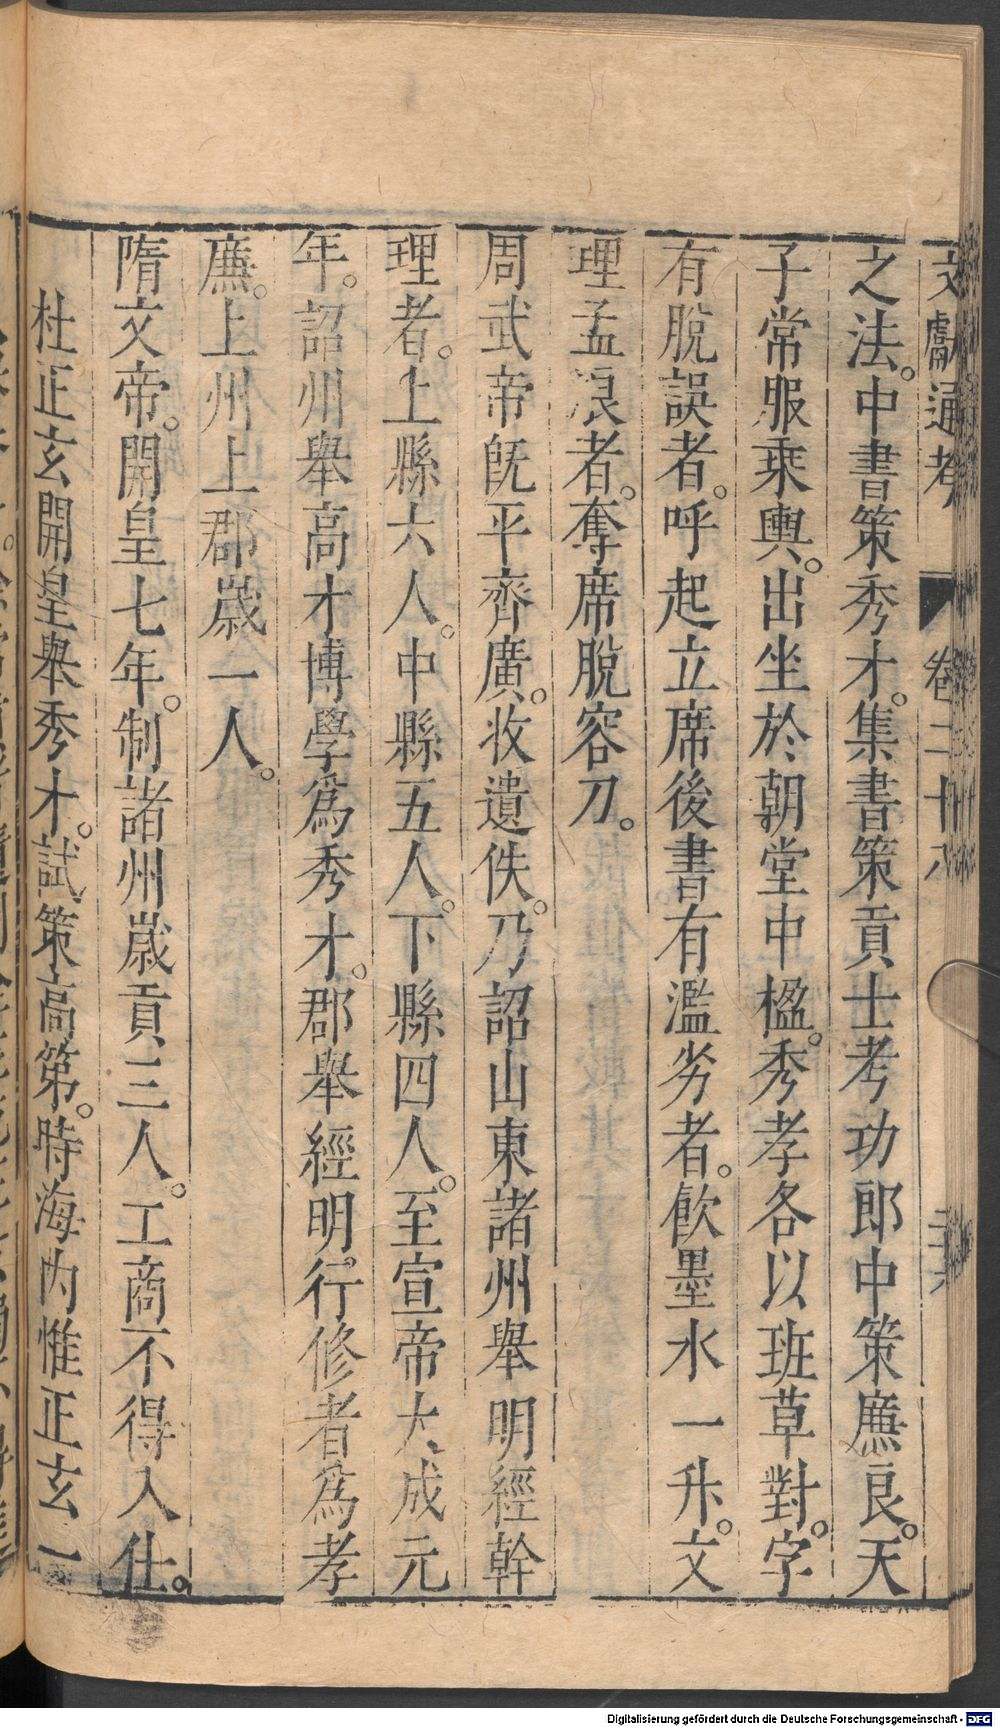 文獻通考 卷二十八
之法。中書策秀才。集書策貢士考功郎中策廉良。天
子常服乘輿。出坐於朝堂中楹。秀孝各以班草對。字
有脫誤者。呼起立席後書。有濫劣者。飲墨水一升。文
理孟浪者。奪席脫容刀。
周武帝旣平齊廣。收遺佚。乃詔山東諸州舉明經幹
理者。上縣六人。中縣五人。下縣四人。至宣帝大成元
年。詔州舉高才博學爲秀才。郡舉經明行修者爲孝
廉。上州上郡歲一人。
隋文帝。開皇七年。制諸州歲貢三人。工商不得入仕。
杜正玄開皇舉秀才。試策高第。時海內惟正玄一
Digitalisierung gefördert durch die Deutsche Forschungsgemeinschaft - DFG